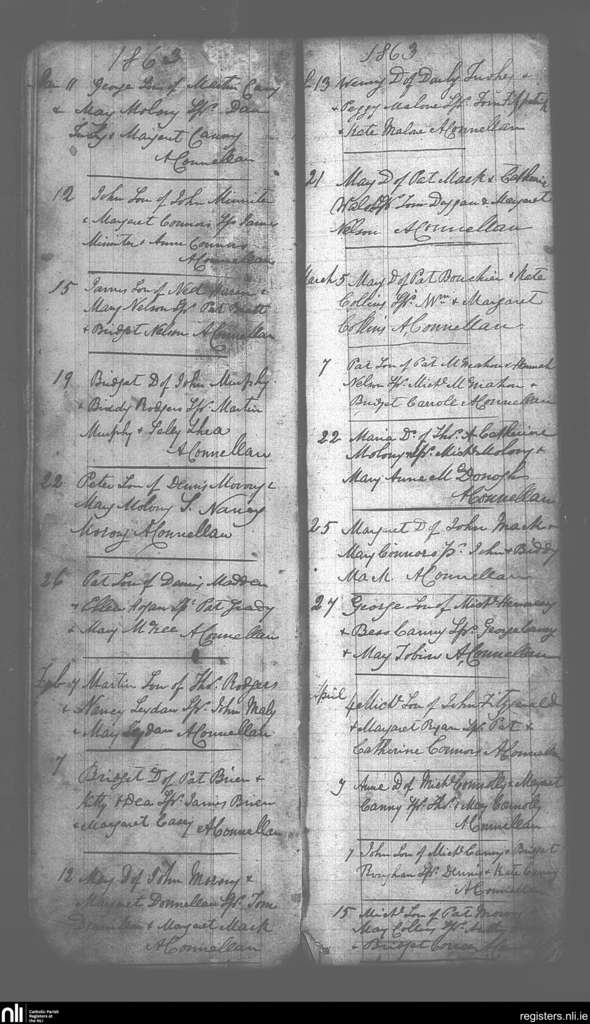 1863
Jan 11 George Son of Martin Canny
& May Molony Sps. Dan
& Margaret Canny
A Connellan
12 John Son of John Minnitir
& Margaret Connors Sps James
Miniter & Anne Connors
A Connellan
15 James Son of Ned &
Mary Nelson Sps Pat
& Bridget Nelson A Connellan
19 Bridget D of John Murphy
& Biddy Rodgers Sps Martin
Murphy & Selley Shea
A Connellan
22 Peter Son of Dennis Morony &
May Molony S. Nancy
Morony A Connellan
26 Pat Son of Dennis Madden
& Ellen Hogan Sps Pat Grady
& Mary A Connellan
Feb Martin Son of Thos. Rodgers
& Nancy Leydan Sps John Maly
& May Leydan A Connellan
7 Bridget D of Pat Brien &
Kitty O'Dea Sps James Brien
& Margaret Casey A Connellan
12 May D of John Morony &
Margaret Donnellan Sps Tom
& Margaret Mack
A Connellan
1863
13 D of Darby &
Peggy Malone Sps Tom Fitzpatrick
& Kate Malone A Connellan
21 May D of Pat Mack & Catherine
Sps Tom Duggan & Margaret
Nelson A Connellan
March 5 May D of Pat Bouchier & Kate
Collins Sps. Wm & Margaret
Collins A Connellan
7 Pat Son of Pat McMahon & Hannah
Nelson Sps Michl McMahon &
Bridget Carroll A Connellan
22 Maria D. of Thos. & Catherine
Molony Sps. Michl Molony &
Mary Anne McDonogh
A Connellan
25 Margaret D of John Mack &
May Connors Sps. John & Biddy
Mack. A Connellan
27 George Son of Michl Hennessy
& Bess Canny Sps George Canny
& May Tobin A Connellan
April 4 Michl Son of John Fitzgerald
& Margaret Ryan Sps Pat &
Catherine Connors A Connellan
7 Anne D of Michl Connolly & Margaret
Canny Sps Thos & May Connolly
A Connellan
7 John Son of Michl Canny & Bridget
Sps. Dennis & Kate Canny
A Connellan
15 Michl Son of Pat Morony
May Collins Sps.
& Bridget
nli
Catholic Parish
Registers at
the NLI
registers.nli.ie